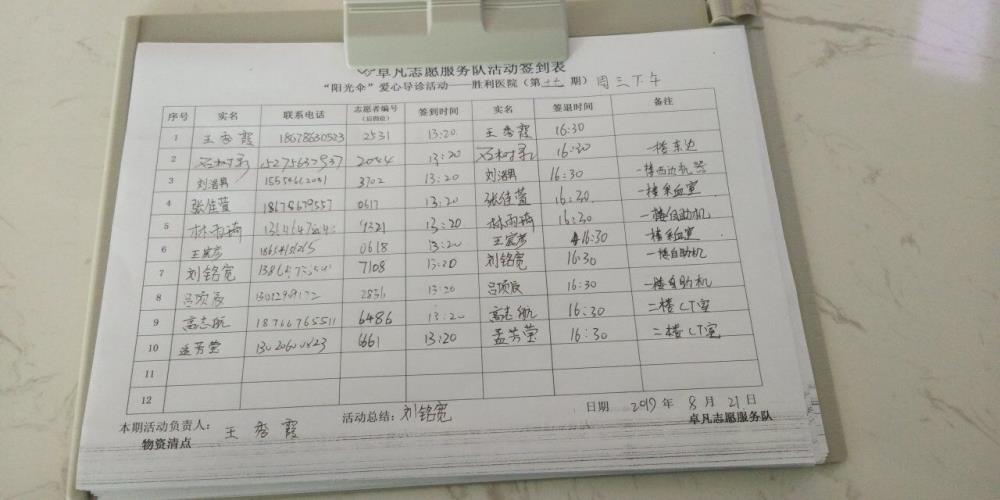 卓凡志愿服务队活动签到表
“阳光伞”爱心导诊活动——胜利医院（第十九期）周三下午
序号 实名 联系电话 志愿者编号（后四位） 签到时间 实名 签退时间 备注
1 王秀霞 18678630523 2531 13:20 王秀霞 16:30
2 13:20 16:30 一楼东边
3 刘浩男 3702 13:20 刘浩男 16:30 一楼西边机器
4 张佳萱 18678679557 0617 13:20 张佳萱 16:30 一楼采血室
5 林雨琦 13:20 林雨琦 16:30 一楼自助机
6 0618 13:20 16:30 一楼采血室
7 刘铭宽 7108 13:20 刘铭宽 16:30 一楼自助机
8 13:20 16:30 一楼自助机
9 高志航 18766765511 6486 13:20 高志航 16:30 二楼CT室
10 孟芳莹 6661 13:20 孟芳莹 16:30 二楼CT室
11
12
本期活动负责人：王秀霞 活动总结：刘铭宽 日期 2019年8月21日
物资清点 卓凡志愿服务队